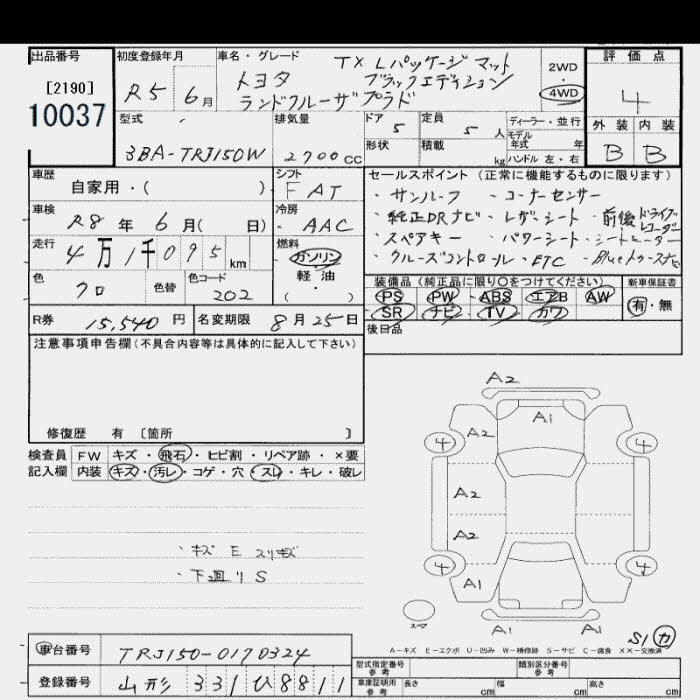 出品番号
[2190]
10037
初度登録年月 車名・グレード
R5 6月
トヨタ TX Lパッケージ マット
ブラックエディション
ランドクルーザプラド
2WD
・
4WD
評価点
4
外装 内装
B B
型式 排気量
3BA-TRJ150W 2700CC
ドア 5 定員 5人 ディーラー・並行
モデル
年式 年
形状 積載 kg ハンドル 左・右
車歴 自家用・( )
シフト FAT
車検 R8年 6月( 日)
冷房 AAC
走行 4万1千095km
燃料 ガソリン
軽・油
( )
色 クロ 色替 色コード 202
セールスポイント (正常に機能するものに限ります)
・サンルーフ ・コーナーセンサー
・純正DRナビ・レザーシート・前後ドライブレコーダー
・スペアキー ・パワーシート・シートヒーター
・クルーズコントロール・ETC ・Bluetoothナビ
装備品 (純正品に限り○をつけてください) 新車保証書
PS PW ABS エアB AW
SR ナビ TV カワ
有・無
R券 15,540円 名変期限 8月25日
後日品
注意事項申告欄(不具合内容等は具体的に記入して下さい)
修復歴 有 〔箇所 〕
検査員 FW キズ・飛石・ヒビ割・リペア跡・×要
記入欄 内装 キズ・汚レ・コゲ・穴・スレ・キレ・破レ
・キズ E スリキズ
・下廻り S
A2
A1
A2
4 4
A2
A2
4 4
A1
スペア
A1 A1
S1 カ
A-キズ E-エクボ U-凹み W-補修跡 S-サビ C-腐食 XX-交換済
車台番号 TRJ150-0170324
登録番号 山形 331 ひ8811
型式指定番号 参考 類別区分番号 参考
車庫証明用 参考 長さ cm 幅 cm 高さ cm